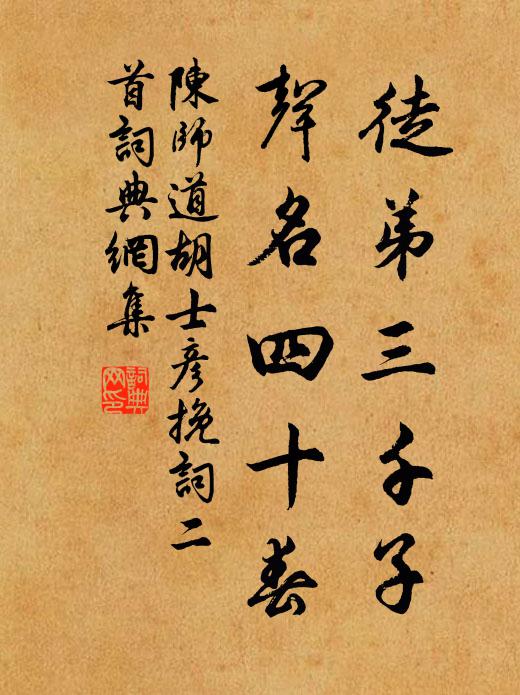 徒弟三千子
聲名四十春
陳師道胡士彥挽詞二
首詞典網集
詞典
网印